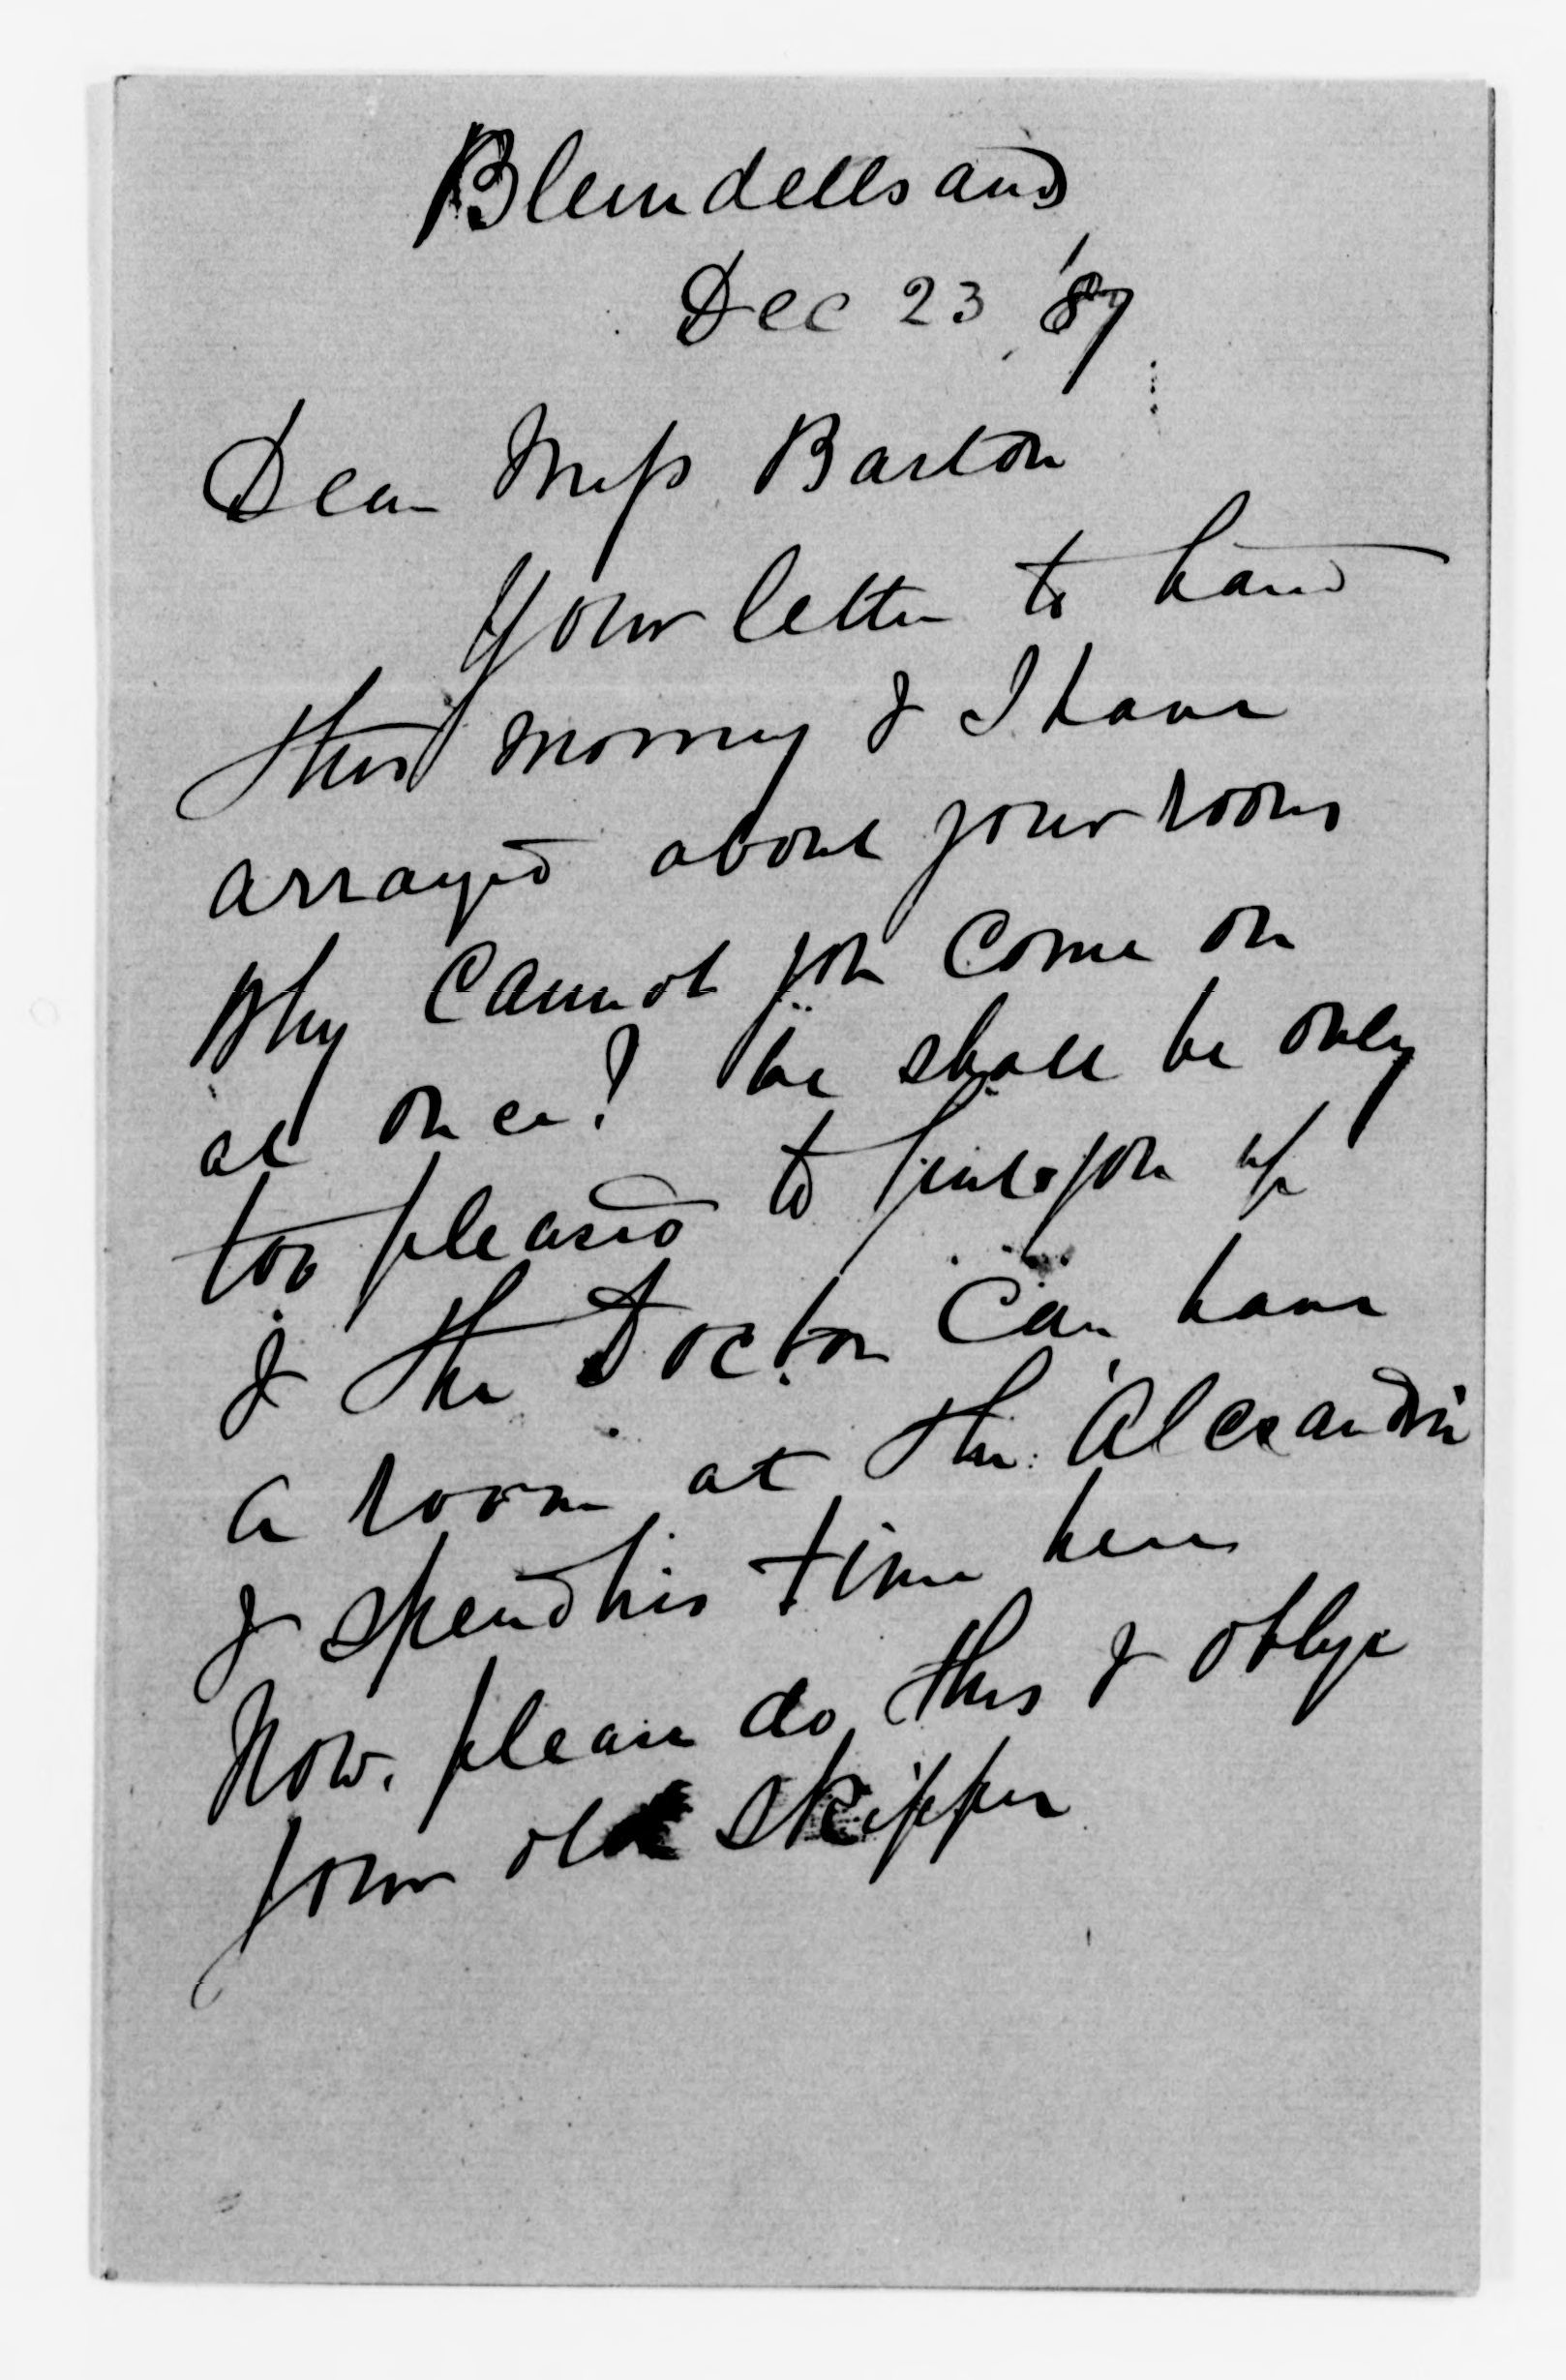 Blundellsands
Dec 23 '87
Dear Miss Barton
Your letter to hand
this morning & I have
arranged about your rooms
Why cannot you come on
at once? We shall be only
too pleased to you up
& the Doctor can have
a room at the Alexandria
& spend his time here
Now, please do this & oblige
Your old Skipper